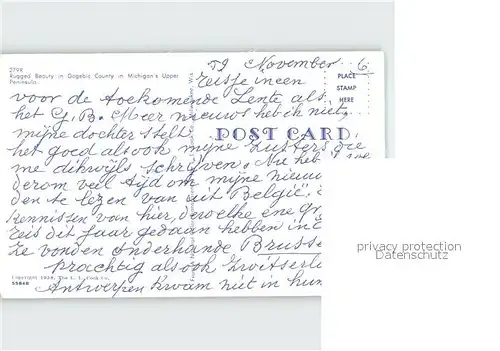 279K
Rugged Beauty in Gogebic County in Michigan's Upper
Peninsula.
59 November 6
PLACE
STAMP
HERE
reisje ineen
voor de toekomende Lente als
het G. B. Meer nieuws heb ik niet,
mijne dochter stelt
POST CARD
het goed alsook mijne Zusters die
me dikwijls schrijven. Nu heb
derom veel tijd om mijne nieuw
den te lezen van uit België.
Kennissen van hier, dewelke ene
reis dit jaar gedaan hebben in
Ze vonden onderhande Brusse
prachtig alsook Zwitserl
Antwerpen kwam niet in hun
Copyright 1954, The L. L. Cook Co.
55848
privacy protection
Datenschutz